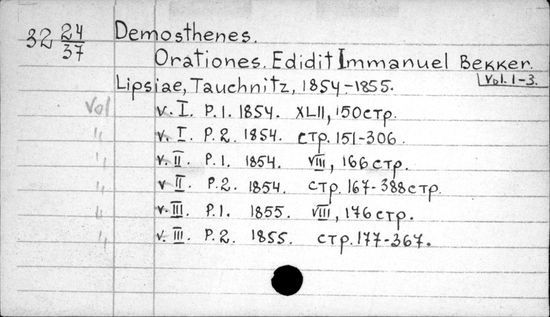 32 24/37 Demosthenes.
Orationes. Edidit Immanuel Bekker.
Lipsiae, Tauchnitz, 1854-1855. Vol. 1-3.
Vol v. I. P. 1. 1854. XLII, 150 стр.
" v. I. P. 2. 1854. стр. 151-306.
" v. II. P. 1. 1854. VIII, 166 стр.
" v. II. P. 2. 1854. стр. 167-388 стр.
" v. III. P. 1. 1855. VIII, 176 стр.
" v. III. P. 2. 1855. стр. 177-367.